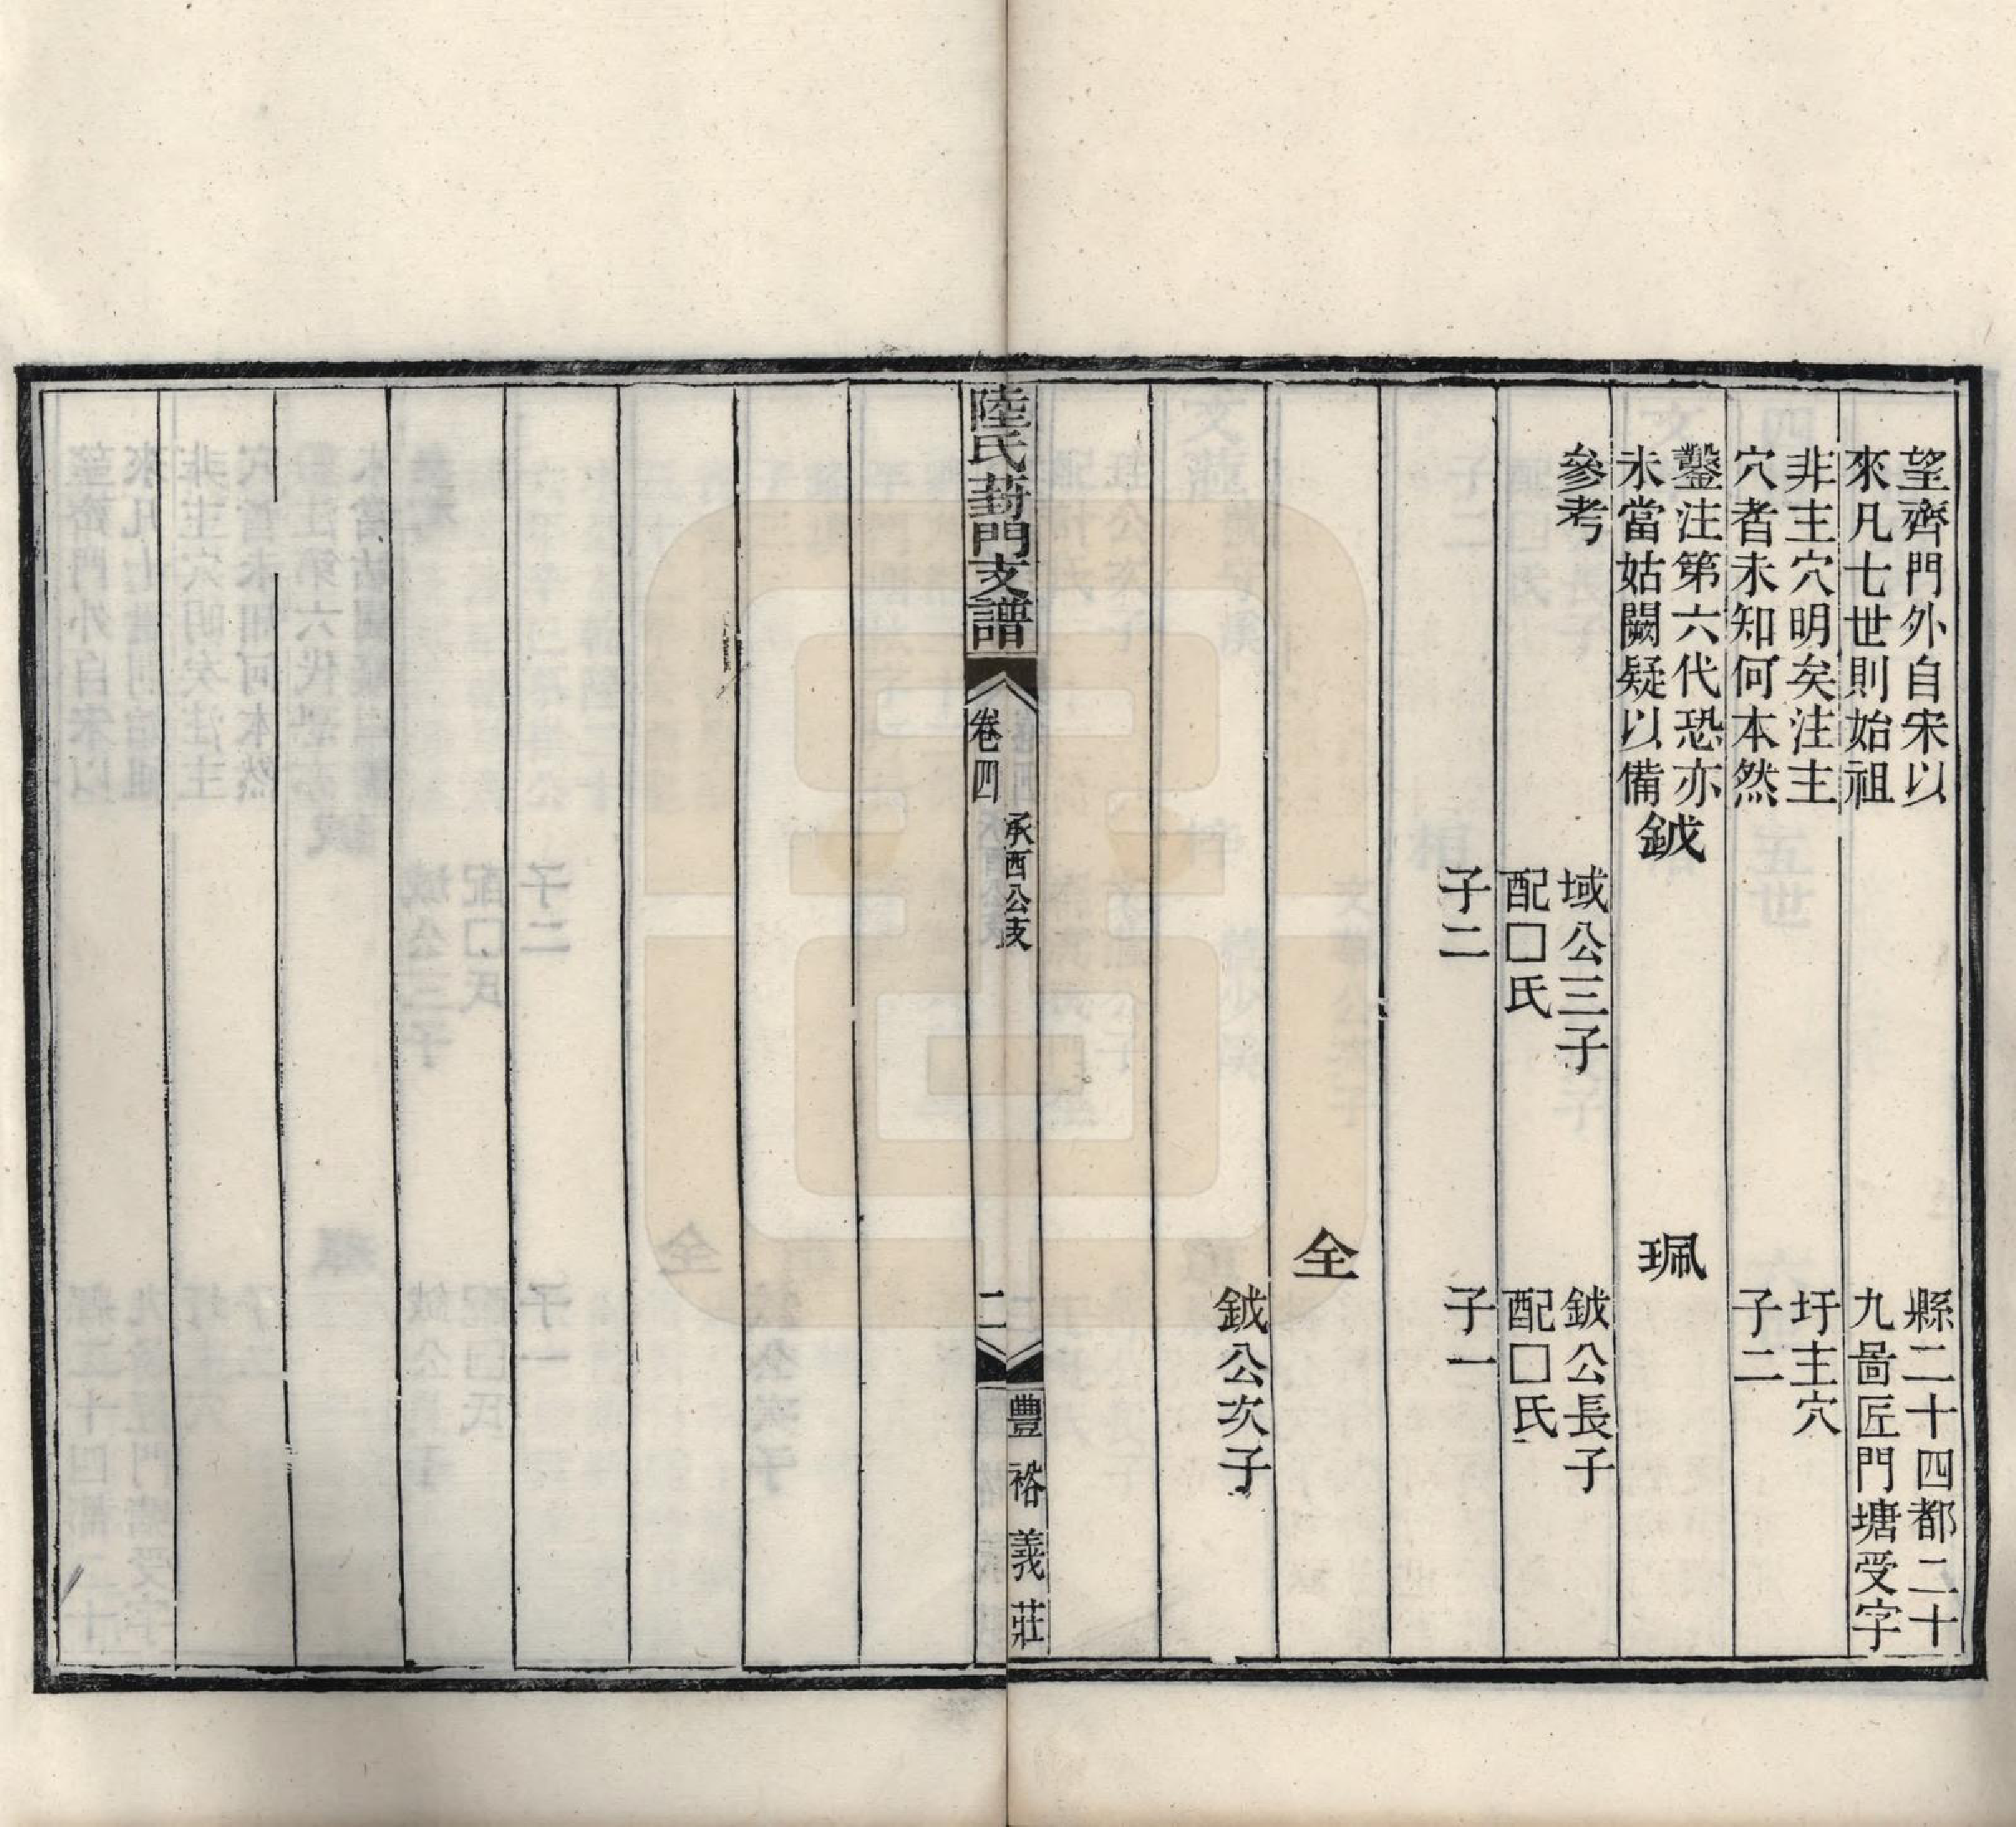 望齊門外自宋以
來凡七世則始祖
非主穴明矣注主
穴者未知何本然
鑿注第六代恐亦
未當姑闕疑以備
參考
鉞
域公三子
配□氏
子二
縣二十四都二十
九啚匠門塘受字
圩主穴
子二
珮
鉞公長子
配□氏
子一
全
鉞公次子
陸氏葑門支譜
卷四
承西公支
二
豐裕義莊